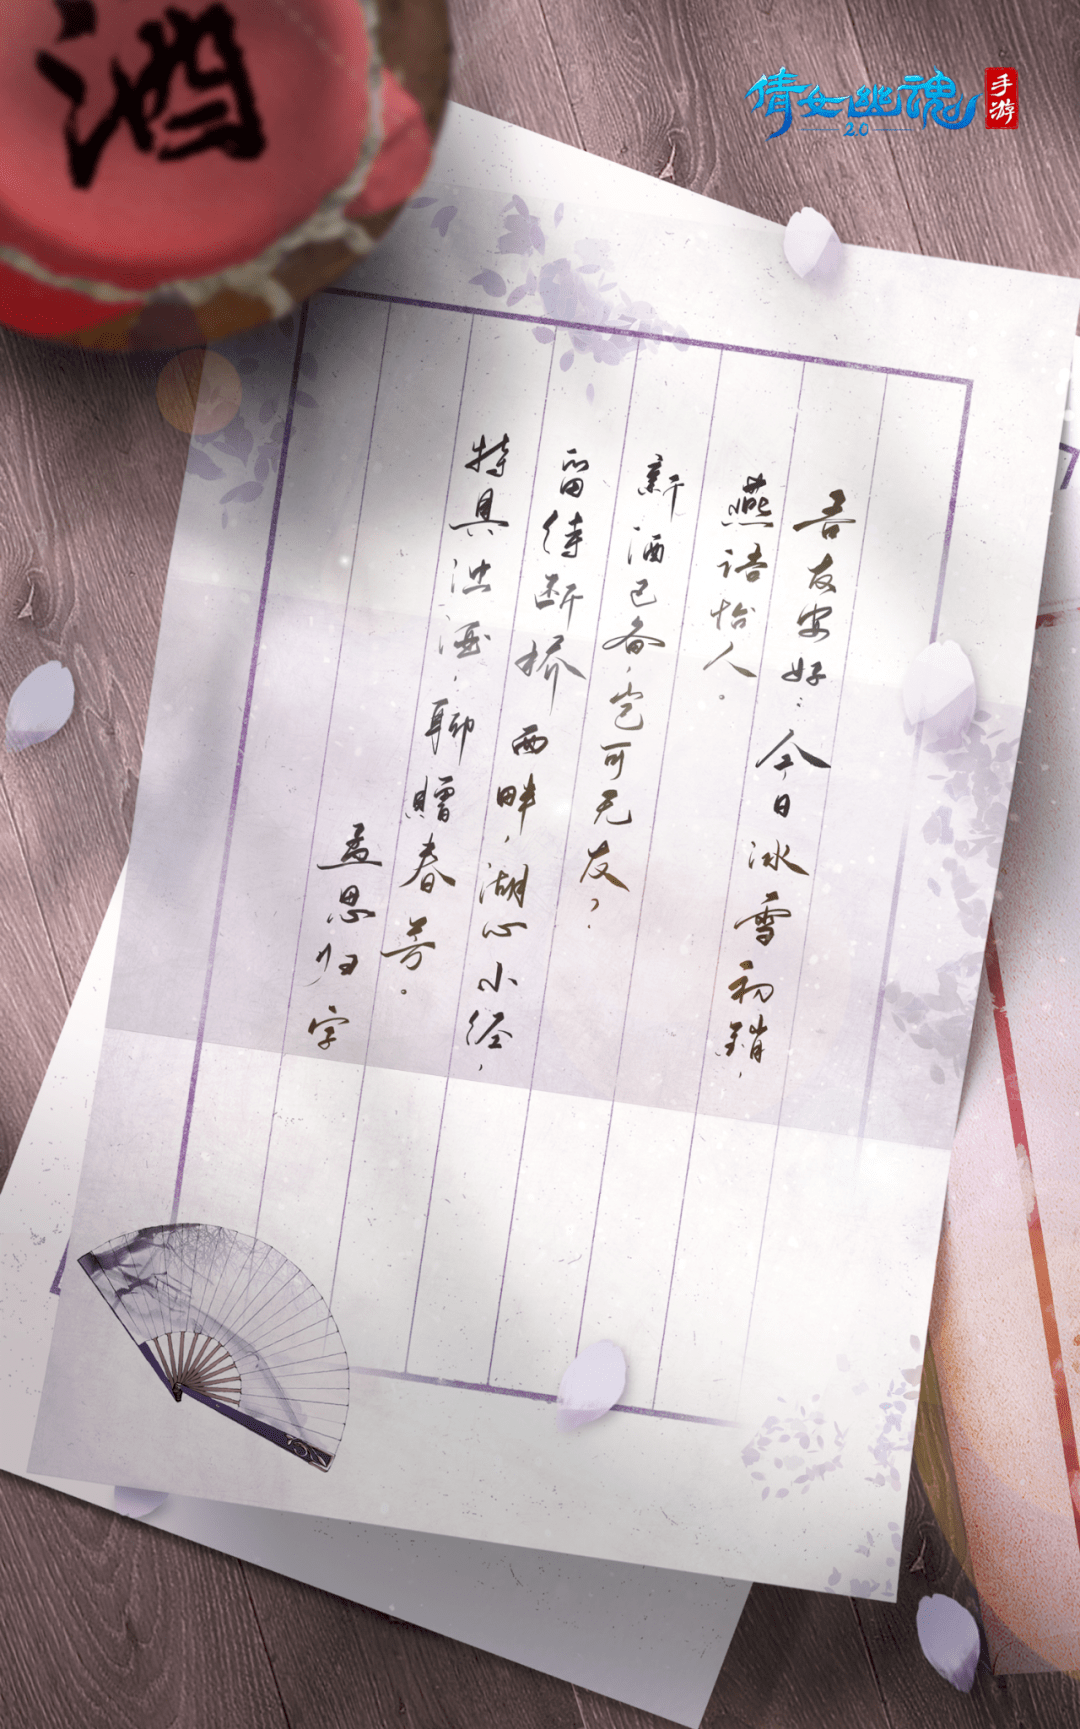 酒
倩女幽魂
2.0
手游
吾友安好：今日冰雪初销，
燕语怡人。
新酒已备，岂可无友？
留待断桥西畔，湖心小径，
特具浊酒，聊赠春芳。
孟思归字